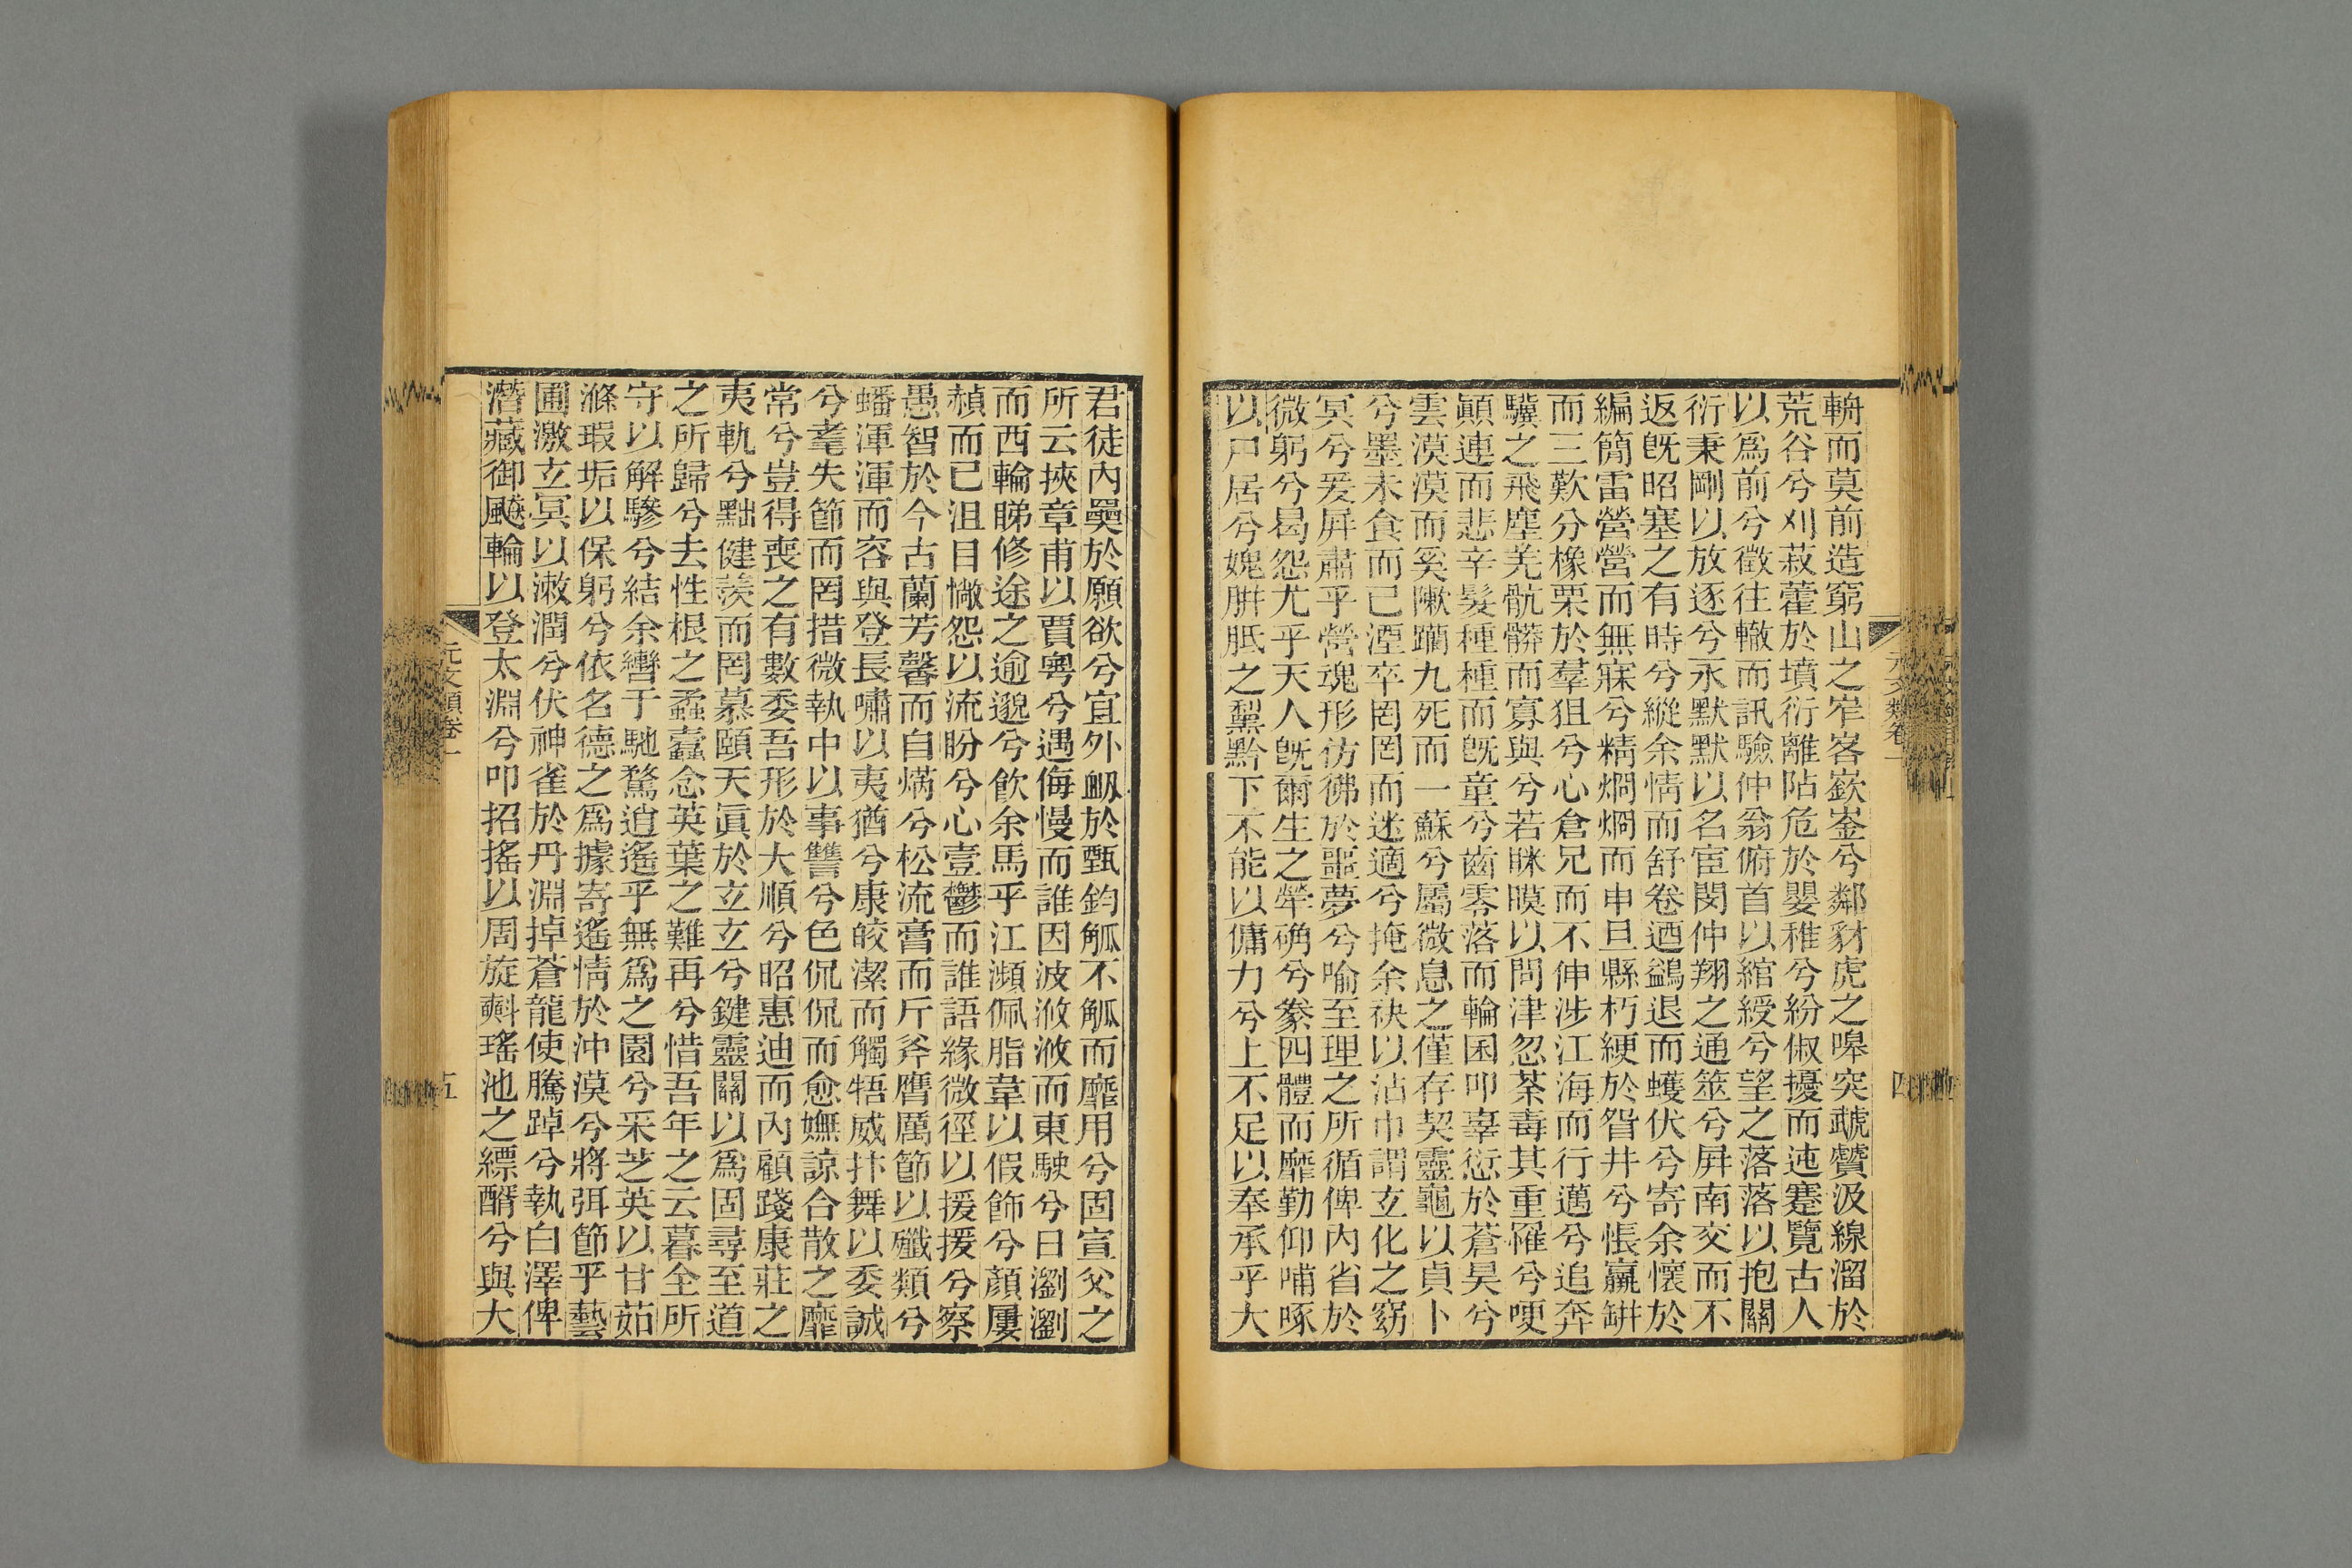 輈而莫前造窮山之穽客嶔崟兮鄰豺虎之嘷突虣贙汲線溜於
荒谷兮刈菽藿於墳衍離阽危於嬰稚兮紛俶擾而迍蹇覽古人
以爲前兮徵往轍而訊驗仲翁俯首以綰綬兮望之落落以抱關
衍秉剛以放逐兮永默默以名宦閔仲翔之通筮兮屏南交而不
返旣昭塞之有時兮縱余情而舒卷迺鷁退而蠖伏兮寄余懷於
編簡雷營營而無寐兮精烱烱而申旦縣朽綆於眢井兮悵羸缾
而三歎分橡栗於羣狙兮心倉兄而不伸涉江海而行邁兮追奔
驥之飛塵羌骯髒而寡與兮若眯瞙以問津忽荼毒其重罹兮哽
顚連而悲辛髮種種而旣童兮齒零落而輪困叩辜愆於蒼昊兮
雲漠漠而奚陳躪九死而一蘇兮屬微息之僅存契靈龜以貞卜
兮墨未食而已湮卒罔罔而迷適兮掩余袂以沾巾謂玄化之窈
冥兮爰屛肅乎營魂形彷彿於噩夢兮喻至理之所循俾内省於
微躬兮曷怨尤乎天人旣爾生之犖确兮豢四體而靡勤仰哺啄
以尸居兮媿胼胝之黧黔下不能以傭力兮上不足以奉承乎大
元文類卷一
四
君徒內奰於願欲兮宜外衂於甄鈞觚不觚而靡用兮固宣父之
所云挾章甫以賈粵兮遇侮慢而誰因波浟浟而東駛兮日瀏瀏
而西輪睇修途之逾邈兮飮余馬乎江瀕佩脂韋以假飾兮顏屢
赬而已沮目憿怨以流盼兮心壹鬱而誰語緣微徑以援援兮察
愚智於今古蘭芳馨而自爇兮松流膏而斤斧膺厲節以殲類兮
蟠渾渾而容與登長嘯以夷猶兮康皎潔而觸牾威抃舞以委誠
兮耄失節而罔措微執中以事讐兮色侃侃而愈嫵諒合散之靡
常兮豈得喪之有數委吾形於大順兮昭惠迪而內顧踐康莊之
夷軌兮黜健羨而罔慕頤天眞於玄玄兮鍵靈關以爲固尋至道
之所歸兮去性根之蟊蠹念英葉之難再兮惜吾年之云暮全所
守以解驂兮結余轡于馳騖逍遙乎無爲之園兮采芝英以甘茹
滌瑕垢以保躬兮依名德之爲據寄遙情於沖漠兮將弭節乎藝
圃激玄冥以漱潤兮伏神雀於丹淵掉蒼龍使騰踔兮執白澤俾
潛藏御飈輪以登太淵兮叩招搖以周旋㪺瑤池之縹醑兮與大
元文類卷一
五